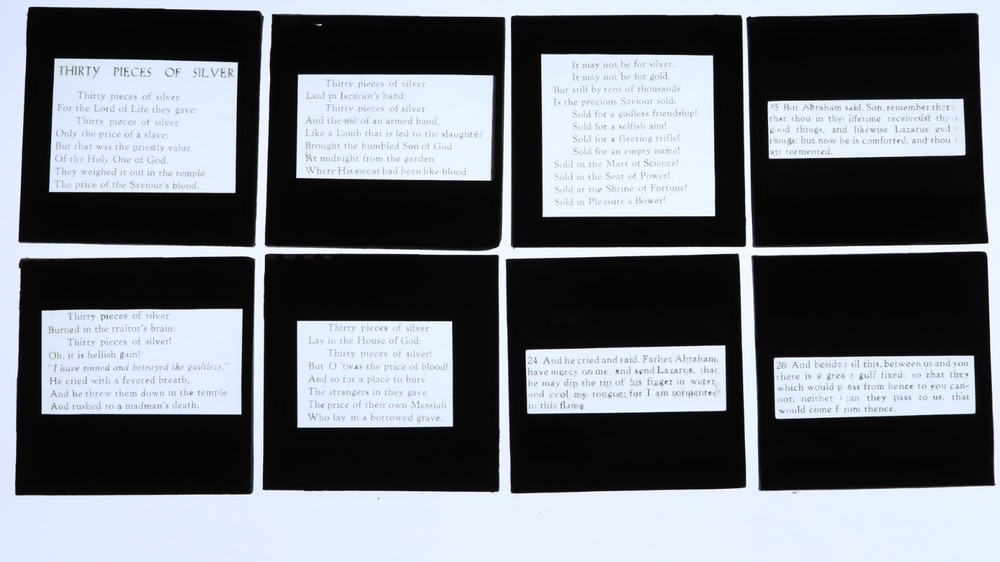 THIRTY PIECES OF SILVER
Thirty pieces of silver
For the Lord of Life they gave:
Thirty pieces of silver
Only the price of a slave;
But that was the priestly value
Of the Holy One of God,
They weighed it out in the temple
The price of the Saviour's blood.
Thirty pieces of silver
Laid in Iscariot's hand:
Thirty pieces of silver
And the aid of an armed band,
Like a Lamb that is led to the slaughter
Brought the humbled Son of God
At midnight from the garden
Where His sweat had been like blood.
It may not be for silver,
It may not be for gold,
But still by tens of thousands
Is the precious Saviour sold.
Sold for a godless friendship!
Sold for a selfish aim!
Sold for a fleeting trifle!
Sold for an empty name!
Sold in the Mart of Science!
Sold in the Seat of Power!
Sold at the Shrine of Fortune!
Sold in Pleasure's Bower!
25 But Abraham said, Son, remember
that thou in thy lifetime receivedst thy
good things, and likewise Lazarus evil
things: but now he is comforted, and thou
art tormented.
Thirty pieces of silver
Burned in the traitor's brain:
Thirty pieces of silver!
Oh, it is hellish gain!
"I have sinned and betrayed the guiltless,"
He cried with a fevered breath,
And he threw them down in the temple
And rushed to a madman's death.
Thirty pieces of silver
Lay in the House of God:
Thirty pieces of silver!
But O 'twas the price of blood!
And so for a place to bury
The strangers in they gave
The price of their own Messiah
Who lay in a borrowed grave.
24 And he cried and said, Father Abraham,
have mercy on me, and send Lazarus, that
he may dip the tip of his finger in water,
and cool my tongue; for I am tormented
in this flame
26 And beside all this, between us and you
there is a great gulf fixed: so that they
which would pass from hence to you can-
not; neither can they pass to us, that
would come from thence.